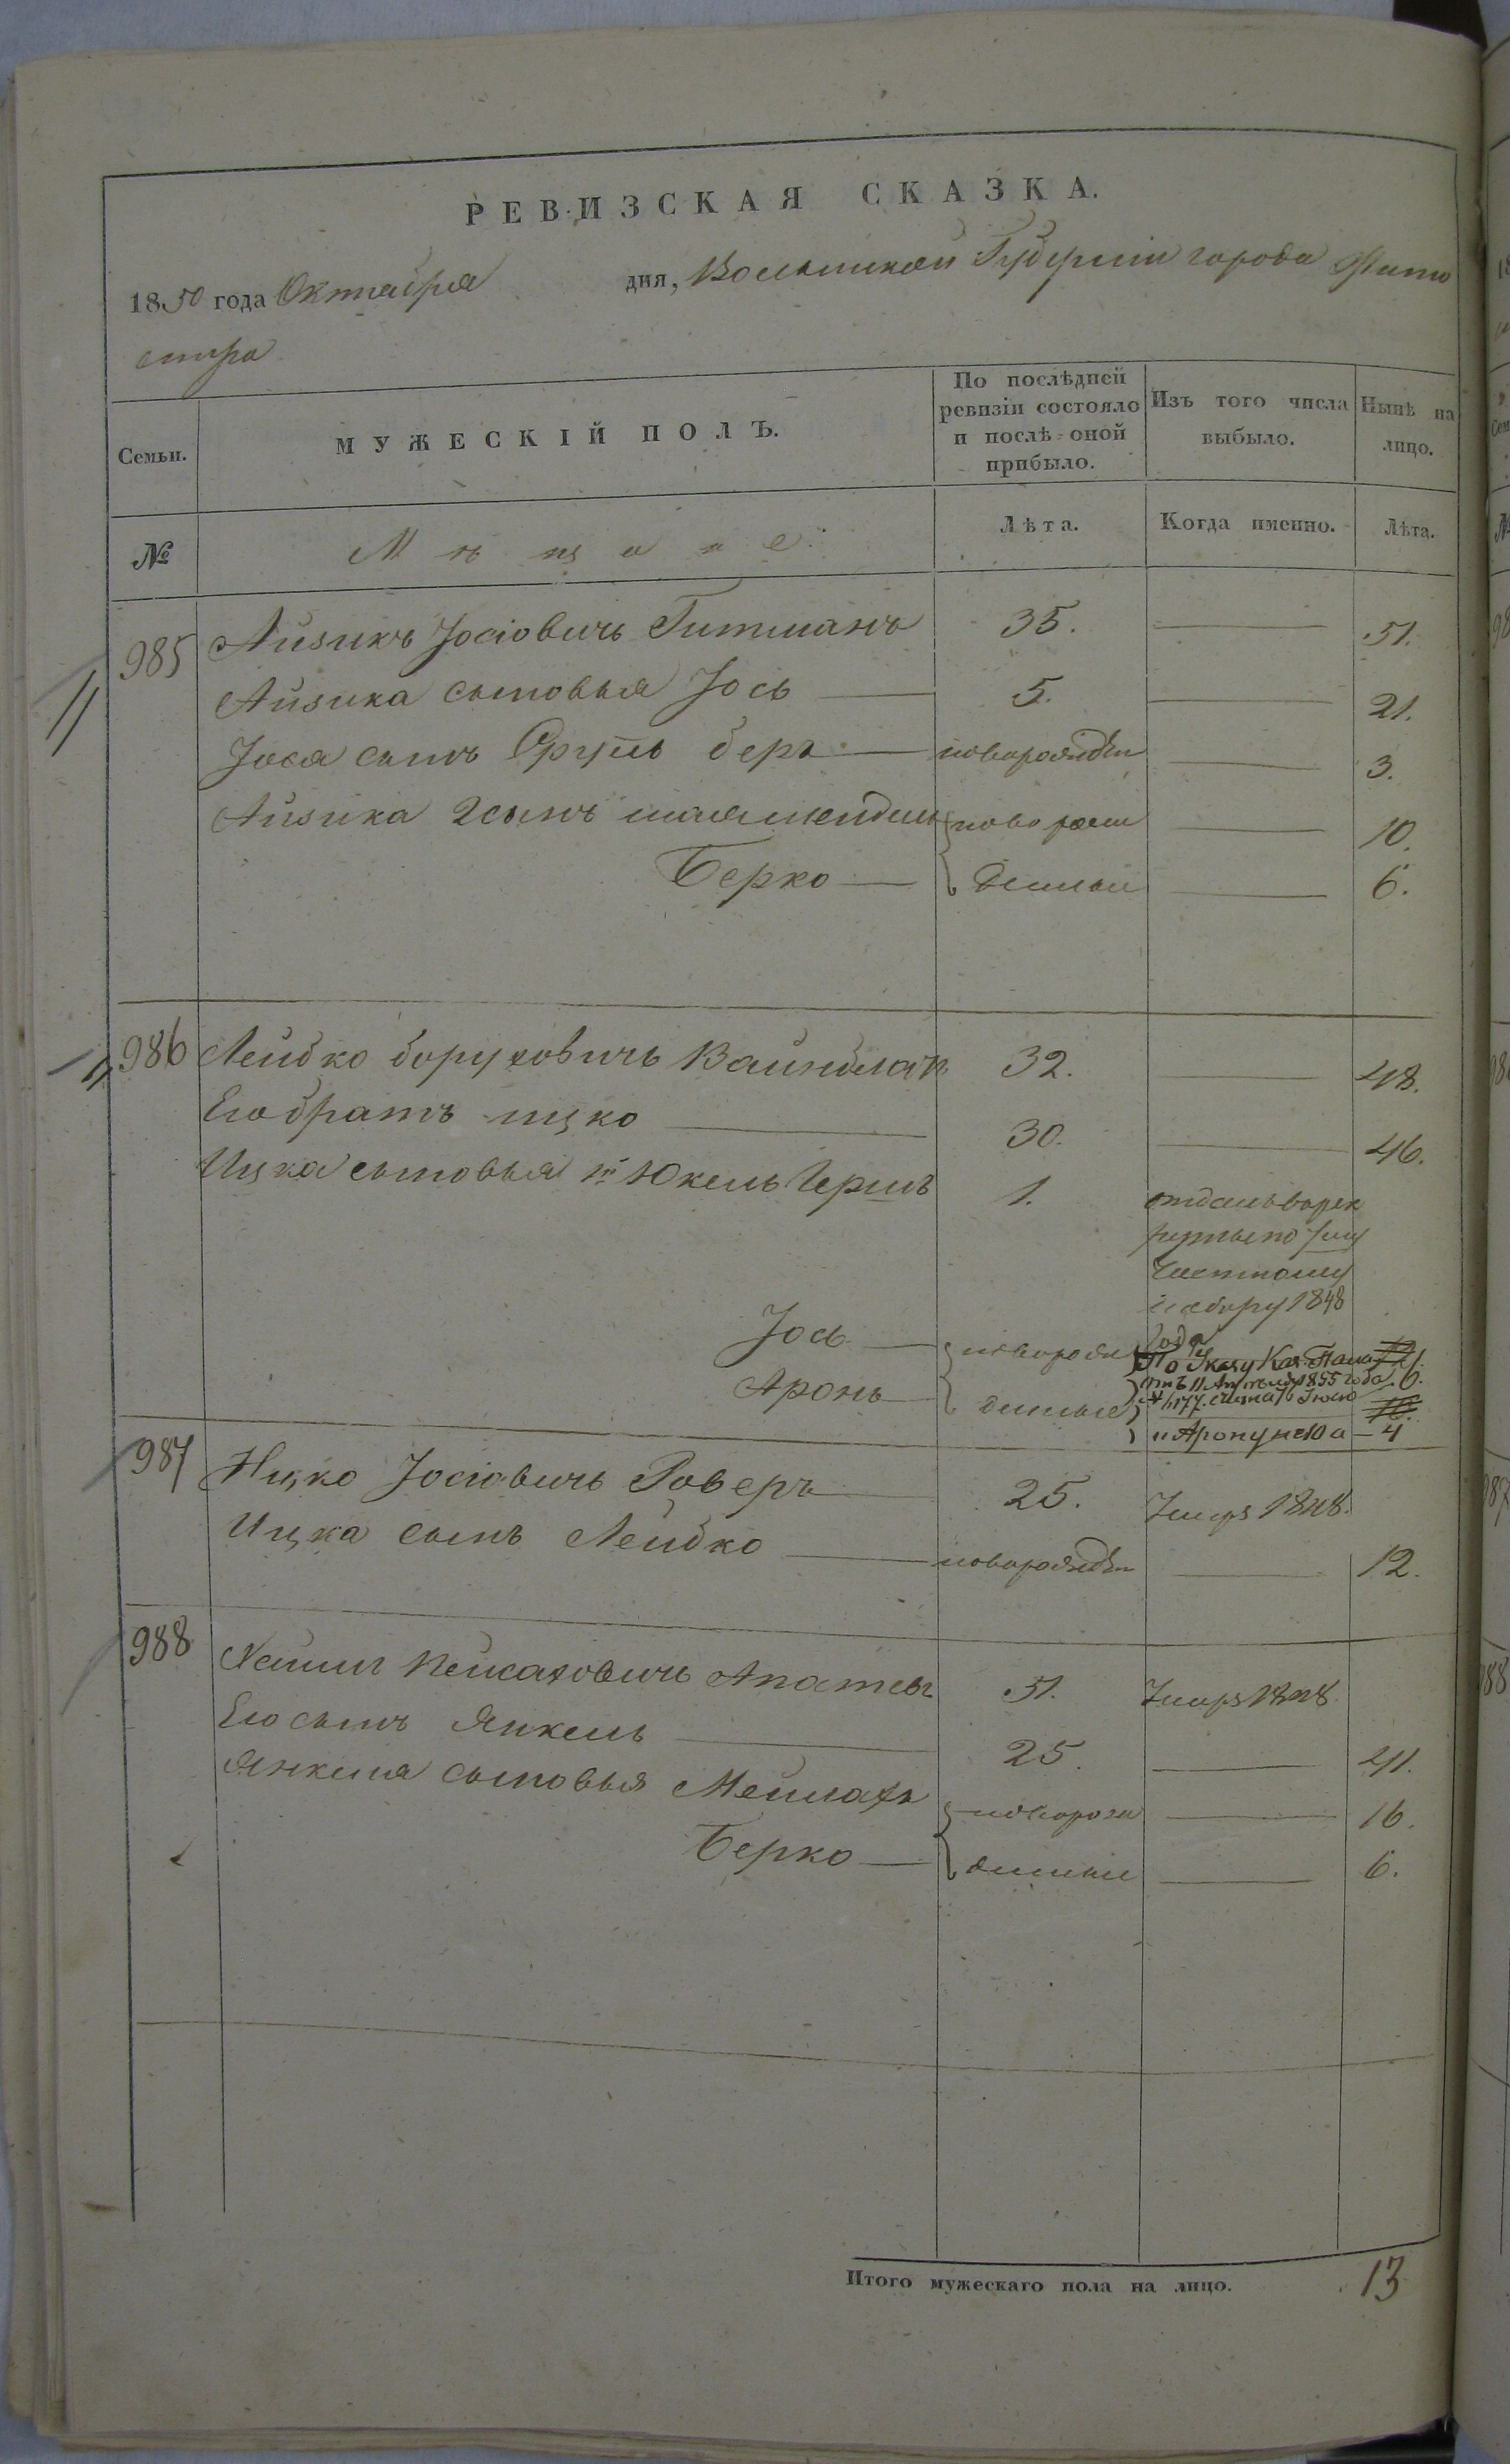 РЕВИЗСКАЯ СКАЗКА.
1850 года Октября дня, Волынской Губернии города Жито
мира
Семьи.
МУЖЕСКІЙ ПОЛЪ.
По послѣдней ревизіи состояло и послѣ оной прибыло.
Изъ того числа выбыло.
Нынѣ на лицо.
№
Мѣщане
Лѣта.
Когда именно.
Лѣта.
985 Айзикъ Іосіовичь Гитманъ 35. 51.
Айзика сыновья Іось 5. 21.
Іося сынъ Сруль беръ новорожден 3.
Айзика 2 сынъ шаямендель новорож 10.
Берко денные 6.
986 Лейбко боруховичь 32. 48.
Его братъ ицко 30. 46.
Ицка сыновья 1й Юкель Гершъ 1. отданъ в рек
руты по
частному
набору 1848
года
Іось новорож
Аронь денные
По Указу Каз. Пала
отъ 11 1855 года 6.
№ 4177.
и Арону 4
987 Ицко Іосіовичь Роверъ 25. Умеръ 1848.
Ицка сынъ Лейбко новорожден 12.
988 Хаим Пейсаховичь 51. Умеръ 1848
Его сынъ Янкель 25. 41.
Янкеля сыновья Мейлахъ новорож 16.
Берко денные 6.
Итого мужескаго пола на лицо. 13